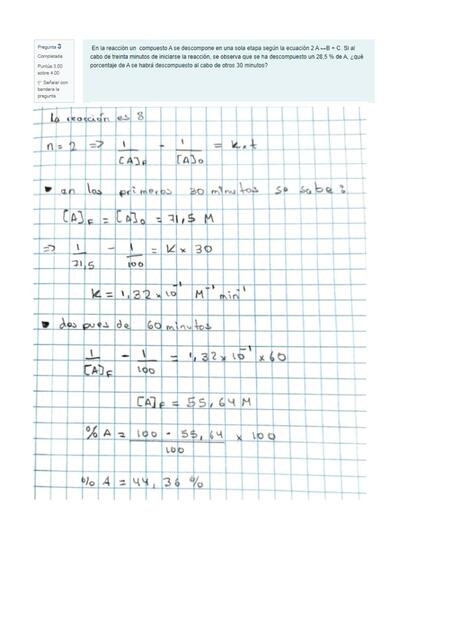 Pregunta 3
Completada
Puntúa 3,00
sobre 4,00
Señalar con
bandera la
pregunta
En la reacción un compuesto A se descompone en una sola etapa según la ecuación 2 A ↔B + C. Si al
cabo de treinta minutos de iniciarse la reacción, se observa que se ha descompuesto un 28,5 % de A, ¿qué
porcentaje de A se habrá descompuesto al cabo de otros 30 minutos?
La reacción es 8
n = 2 => 1/[A]F - 1/[A]0 = K.t
• en los primeros 30 minutos se sabe:
[A]F = [A]0 = 71,5 M
=> 1/71,5 - 1/100 = K x 30
K = 1,32 x 10^-1 M^-1 min^-1
• des pues de 60 minutos
1/[A]F - 1/100 = 1,32 x 10^-1 x 60
[A]F = 55,64 M
% A = (100 - 55,64)/100 x 100
% A = 44,36 %